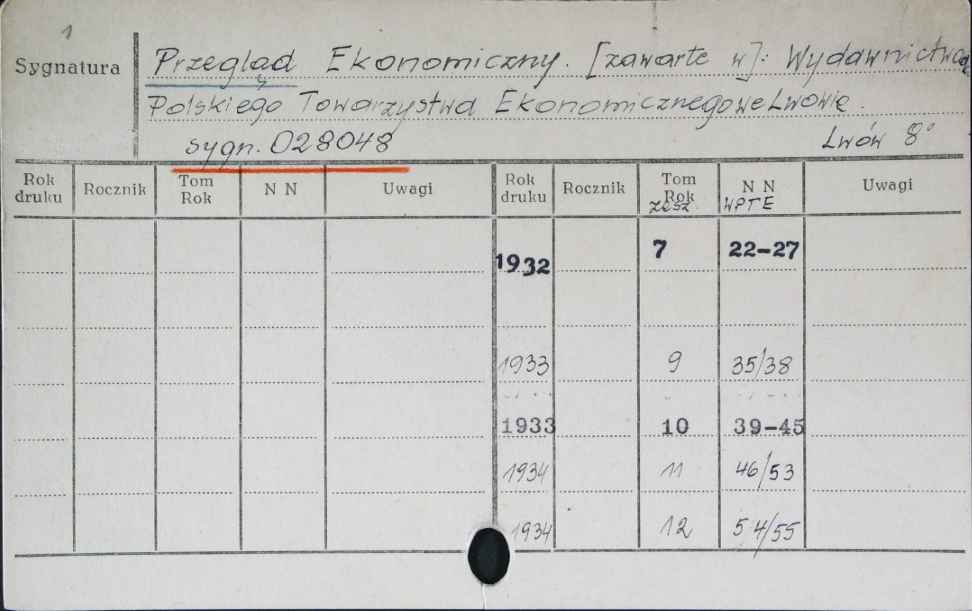 1
Sygnatura Przegląd Ekonomiczny. [zawarte w]: Wydawnictwa
Polskiego Towarzystwa Ekonomicznego we Lwowie.
sygn. 028048 Lwów 8°
Rok druku Rocznik Tom Rok N N Uwagi Rok druku Rocznik Tom Rok zesz N N WPTE Uwagi
1932 7 22-27
1933 9 35/38
1933 10 39-45
1934 11 46/53
1934 12 54/55